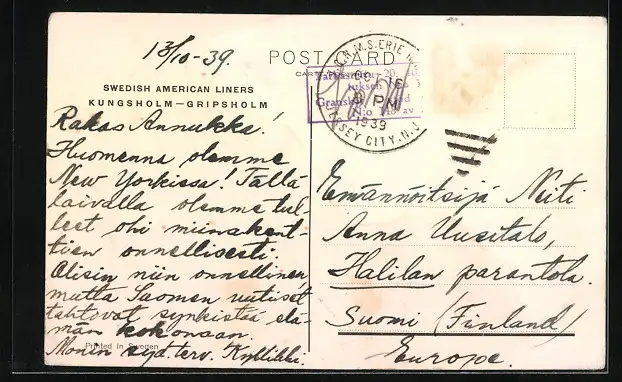 13/10-39.
POST CARD
SWEDISH AMERICAN LINERS
KUNGSHOLM—GRIPSHOLM
Rakas Annukka!
Huomenna olemme
New Yorkissa! Tällä
laivalla olemme tul-
leet ohi miinakent-
tien onnellisesti.
Olisin niin onnellinen
mutta Suomen uutiset
tahtovat synkistää elä-
män kokonaan.
Monin syd. terv. Kyllikki.
Printed in Sweden
OCT 16
8 PM
1939
JERSEY CITY, N.J.
Emännöitsijä Neiti
Anna Uusitalo,
Halilan parantola.
Suomi (Finland)
Europe.